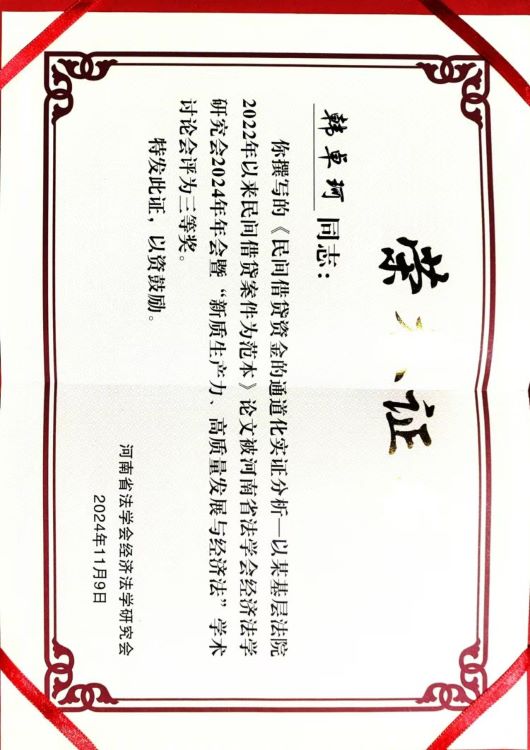 荣 证
韩卓珂 同志：
你撰写的《民间借贷资金的通道化实证分析—以某基层法院
2022年以来民间借贷案件为范本》论文被河南省法学会经济法学
研究会2024年年会暨“新质生产力、高质量发展与经济法”学术
讨论会评为三等奖。
特发此证，以资鼓励。
河南省法学会经济法学研究会
2024年11月9日